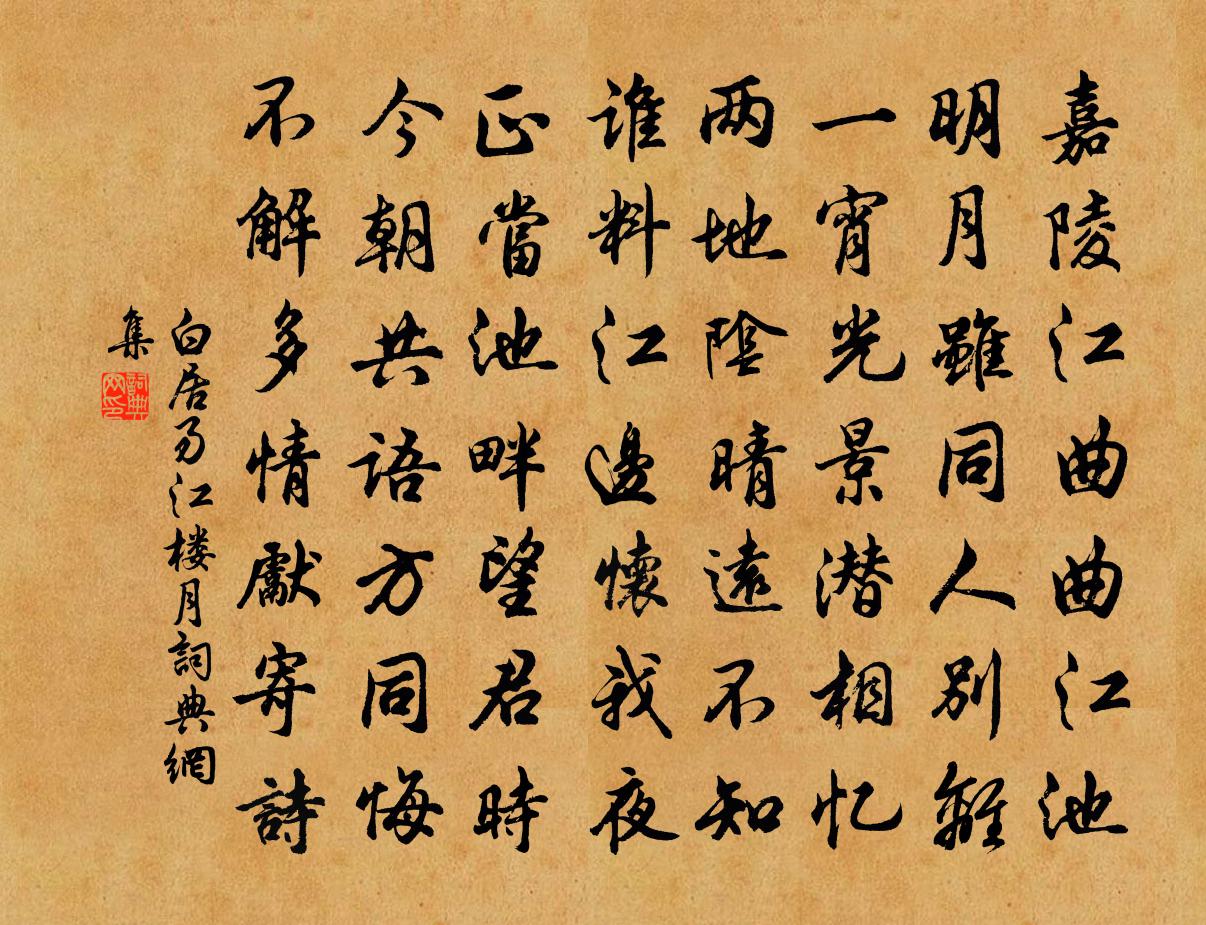 嘉陵江曲曲江池
明月雖同人別離
一宵光景潜相忆
两地陰晴遠不知
誰料江邊懷我夜
正當池畔望君時
今朝共語方同悔
不解多情獻寄詩
白居易江楼月詞典網
集
詞典
网印